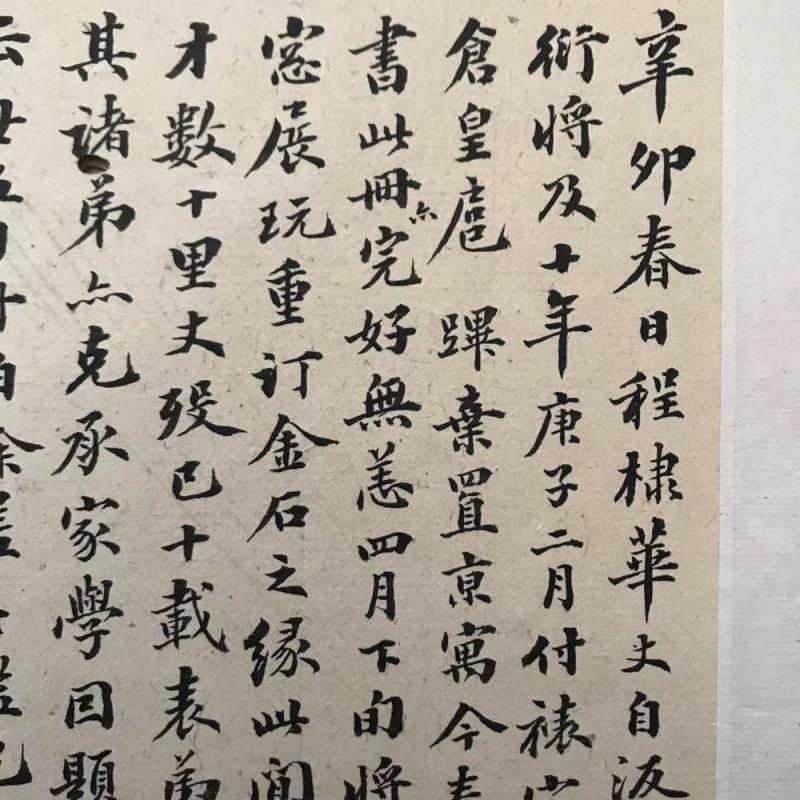 辛卯春日程棣華丈自汳
衍将及十年庚子二月付裱
倉皇扈蹕棄置京寓今
書此冊亦完好無恙四月下旬将
窓展玩重訂金石之緣此間
才數十里丈歿已十載表弟
其諸弟亦克承家學因題